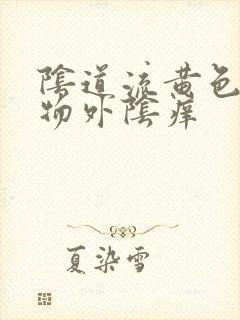 陰道流黄色
物外陰痒
夏染雪